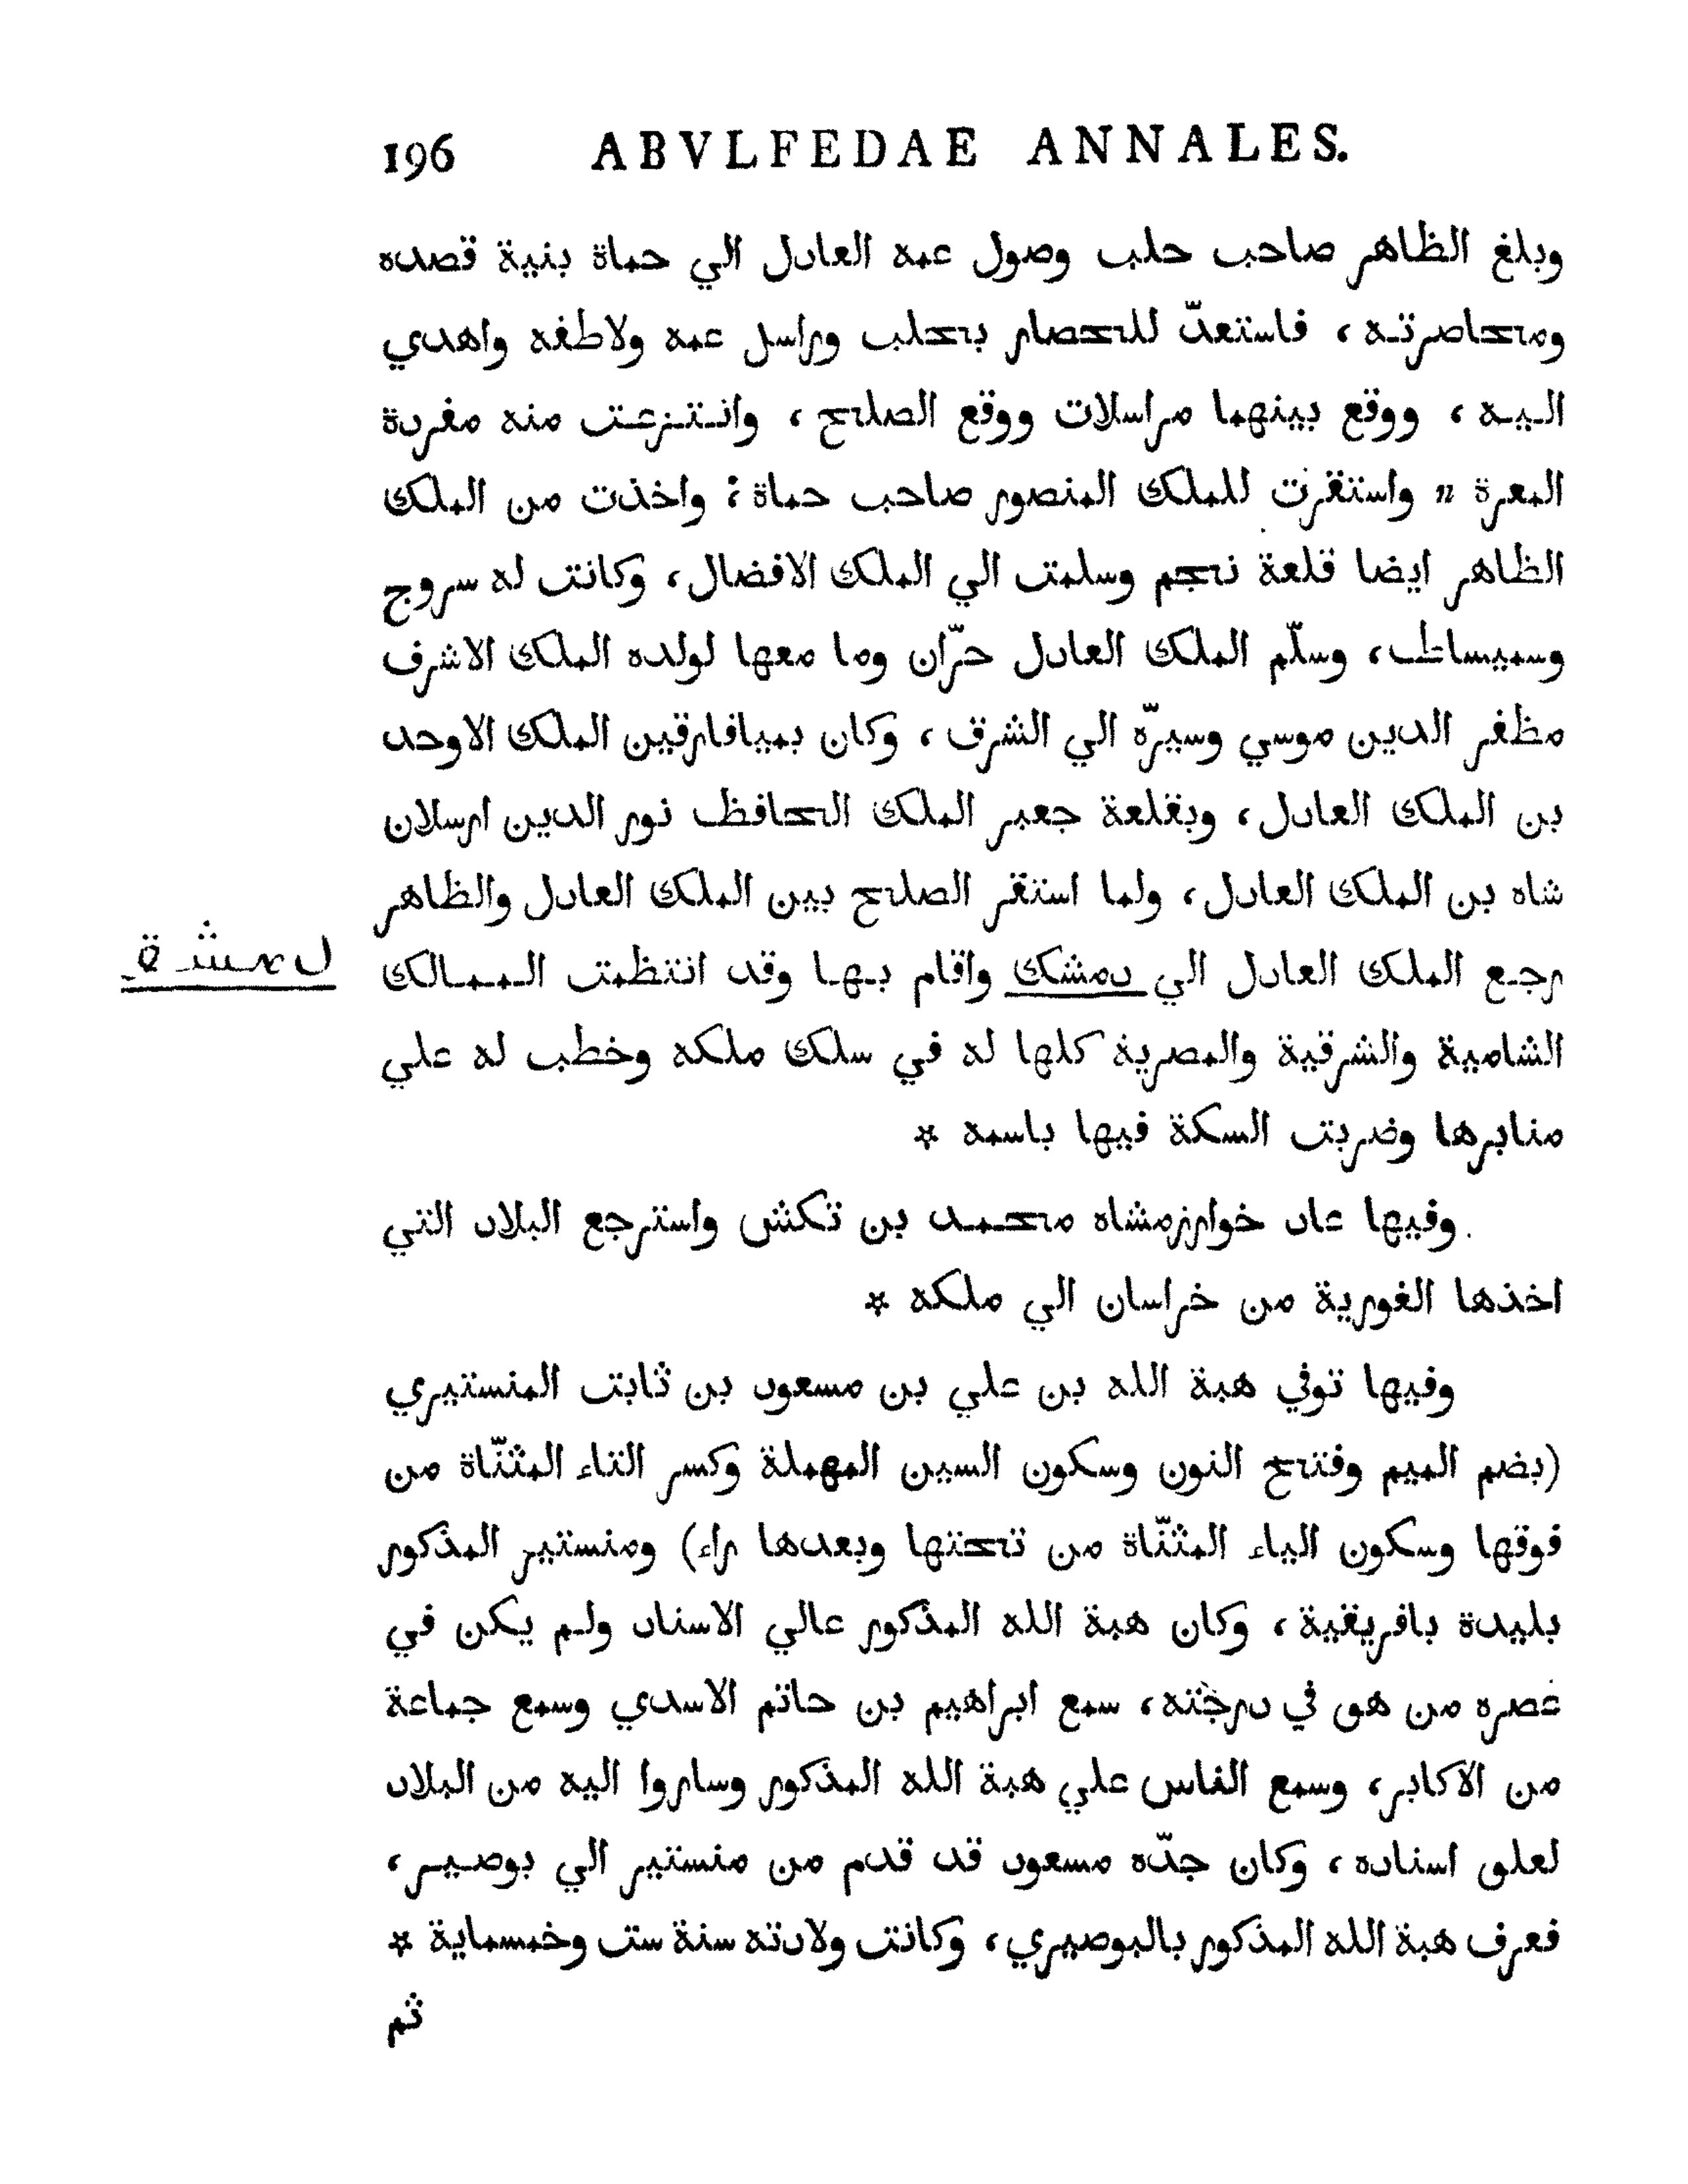 196 ABVLFEDAE ANNALES.
وبلغ الظاهر صاحب حلب وصول عمه العادل الي حماة بنية قصده
ومحاصرته ، فاستعدّ للحصار بحلب وراسل عمه ولاطفه واهدي
اليه ، ووقع بينهما مراسلات ووقع الصلح ، وانتزعت منه مفردة
المعرة n واستقرت للملك المنصور صاحب حماة ؛ واخذت من الملك
الظاهر ايضا قلعة نجم وسلمت الي الملك الافضال ، وكانت له سروج
وسميساط ، وسلّم الملك العادل حرّان وما معها لولده الملك الاشرف
مظفر الدين موسي وسيرّه الي الشرق ، وكان بميافارقين الملك الاوحد
بن الملك العادل ، وبقلعة جعبر الملك الحافظ نور الدين ارسلان
شاه بن الملك العادل ، ولما استقر الصلح بين الملك العادل والظاهر
رجع الملك العادل الي دمشك واقام بها وقد انتظمت الممالك
الشامية والشرقية والمصرية كلها له في سلك ملكه وخطب له علي
منابرها وضربت السكة فيها باسمه *
وفيها عاد خوارزمشاه محمد بن تكش واسترجع البلاد التي
اخذها الغورية من خراسان الي ملكه *
وفيها توفي هبة الله بن علي بن مسعود بن ثابت المنستيري
(بضم الميم وفتح النون وسكون السين المهملة وكسر التاء المثنّاة من
فوقها وسكون الياء المثنّاة من تحتها وبعدها راء) ومنستير المذكور
بليدة بافريقية ، وكان هبة الله المذكور عالي الاسناد ولم يكن في
عصره من هو في درجته ، سمع ابراهيم بن حاتم الاسدي وسمع جماعة
من الاكابر ، وسمع الناس علي هبة الله المذكور وساروا اليه من البلاد
لعلو اسناده ، وكان جدّه مسعود قد قدم من منستير الي بوصير ،
فعرف هبة الله المذكور بالبوصيري ، وكانت ولادته سنة ست وخمسماية *
ثم